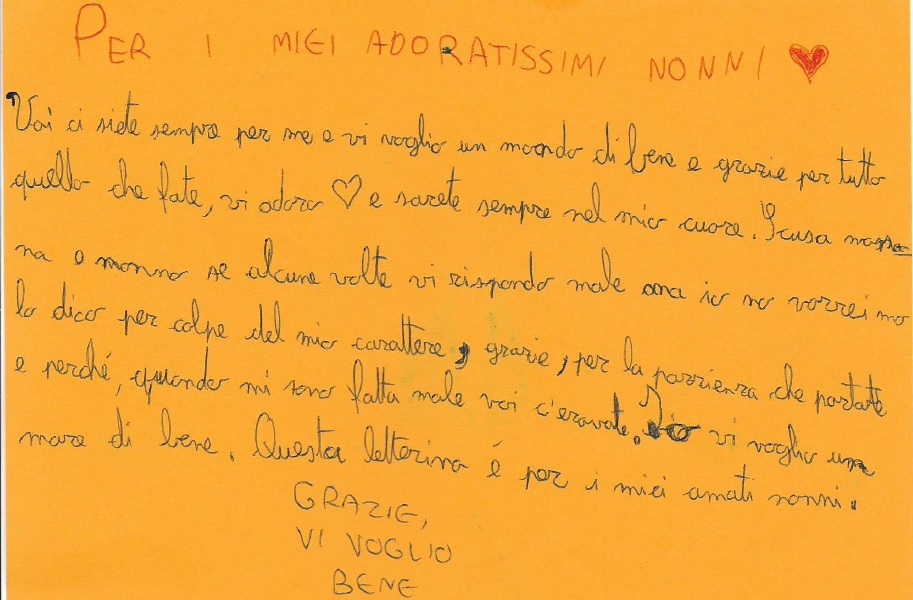 PER I MIEI ADORATISSIMI NONNI
Voi ci siete sempre per me e vi voglio un mondo di bene e grazie per tutto
quello che fate, vi adoro e sarete sempre nel mio cuore. Scusa
na o nonno se alcune volte vi rispondo male ma io no vorrei ma
lo dico per colpe del mio carattere, grazie, per la pazzienza che portate
e perché, quando mi sono fatta male voi c'eravate. Io vi voglio un
mare di bene. Questa letterina é per i miei amati nonni.
GRAZIE,
VI VOGLIO
BENE